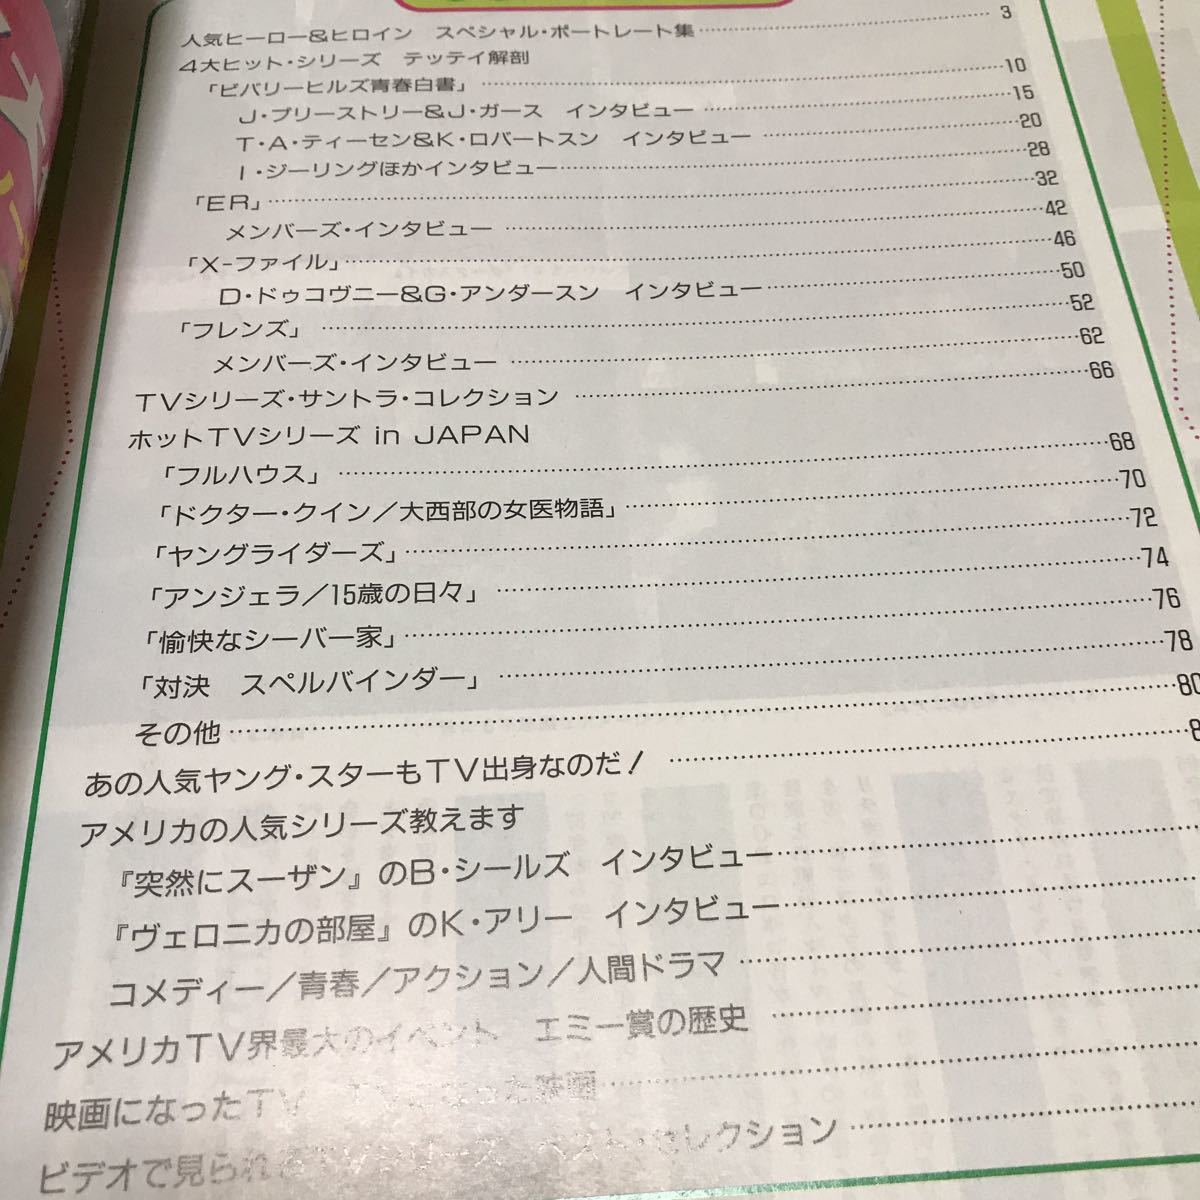 人気ヒーロー&ヒロイン　スペシャル・ポートレート集 3
4大ヒット・シリーズ　テッテイ解剖
「ビバリーヒルズ青春白書」 10
J・プリーストリー&J・ガース　インタビュー 15
T・A・ティーセン&K・ロバートスン　インタビュー 20
I・ジーリングほかインタビュー 28
「ER」 32
メンバーズ・インタビュー 42
「X-ファイル」 46
D・ドゥコヴニー&G・アンダースン　インタビュー 50
「フレンズ」 52
メンバーズ・インタビュー 62
TVシリーズ・サントラ・コレクション 66
ホットTVシリーズ in JAPAN
「フルハウス」 68
「ドクター・クイン/大西部の女医物語」 70
「ヤングライダーズ」 72
「アンジェラ/15歳の日々」 74
「愉快なシーバー家」 76
「対決　スペルバインダー」 78
その他 80
あの人気ヤング・スターもTV出身なのだ!
アメリカの人気シリーズ教えます
『突然にスーザン』のB・シールズ　インタビュー
『ヴェロニカの部屋』のK・アリー　インタビュー
コメディー/青春/アクション/人間ドラマ
アメリカTV界最大のイベント　エミー賞の歴史
映画になったTV　TVになった映画
ビデオで見られるTVシリーズ　ベスト・セレクション